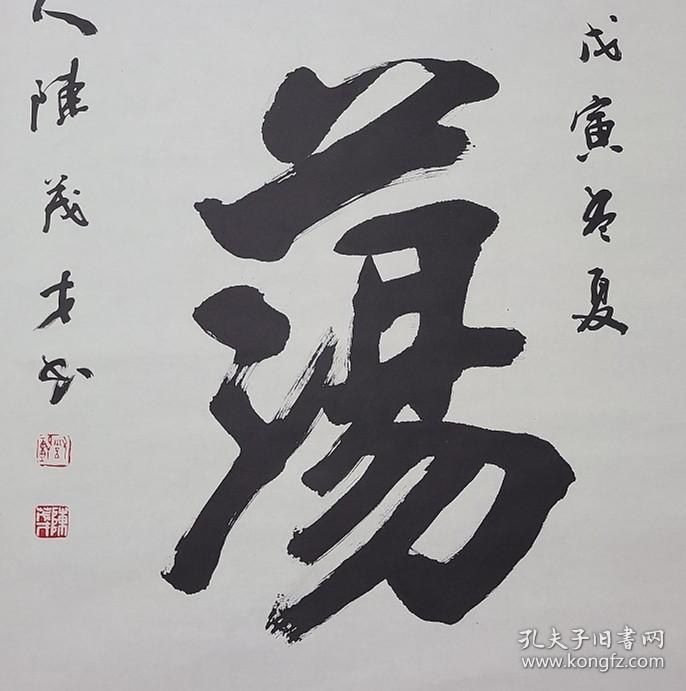 戊寅夏
蕩
人陳茂才書
孔夫子旧書网
www.kongfz.com